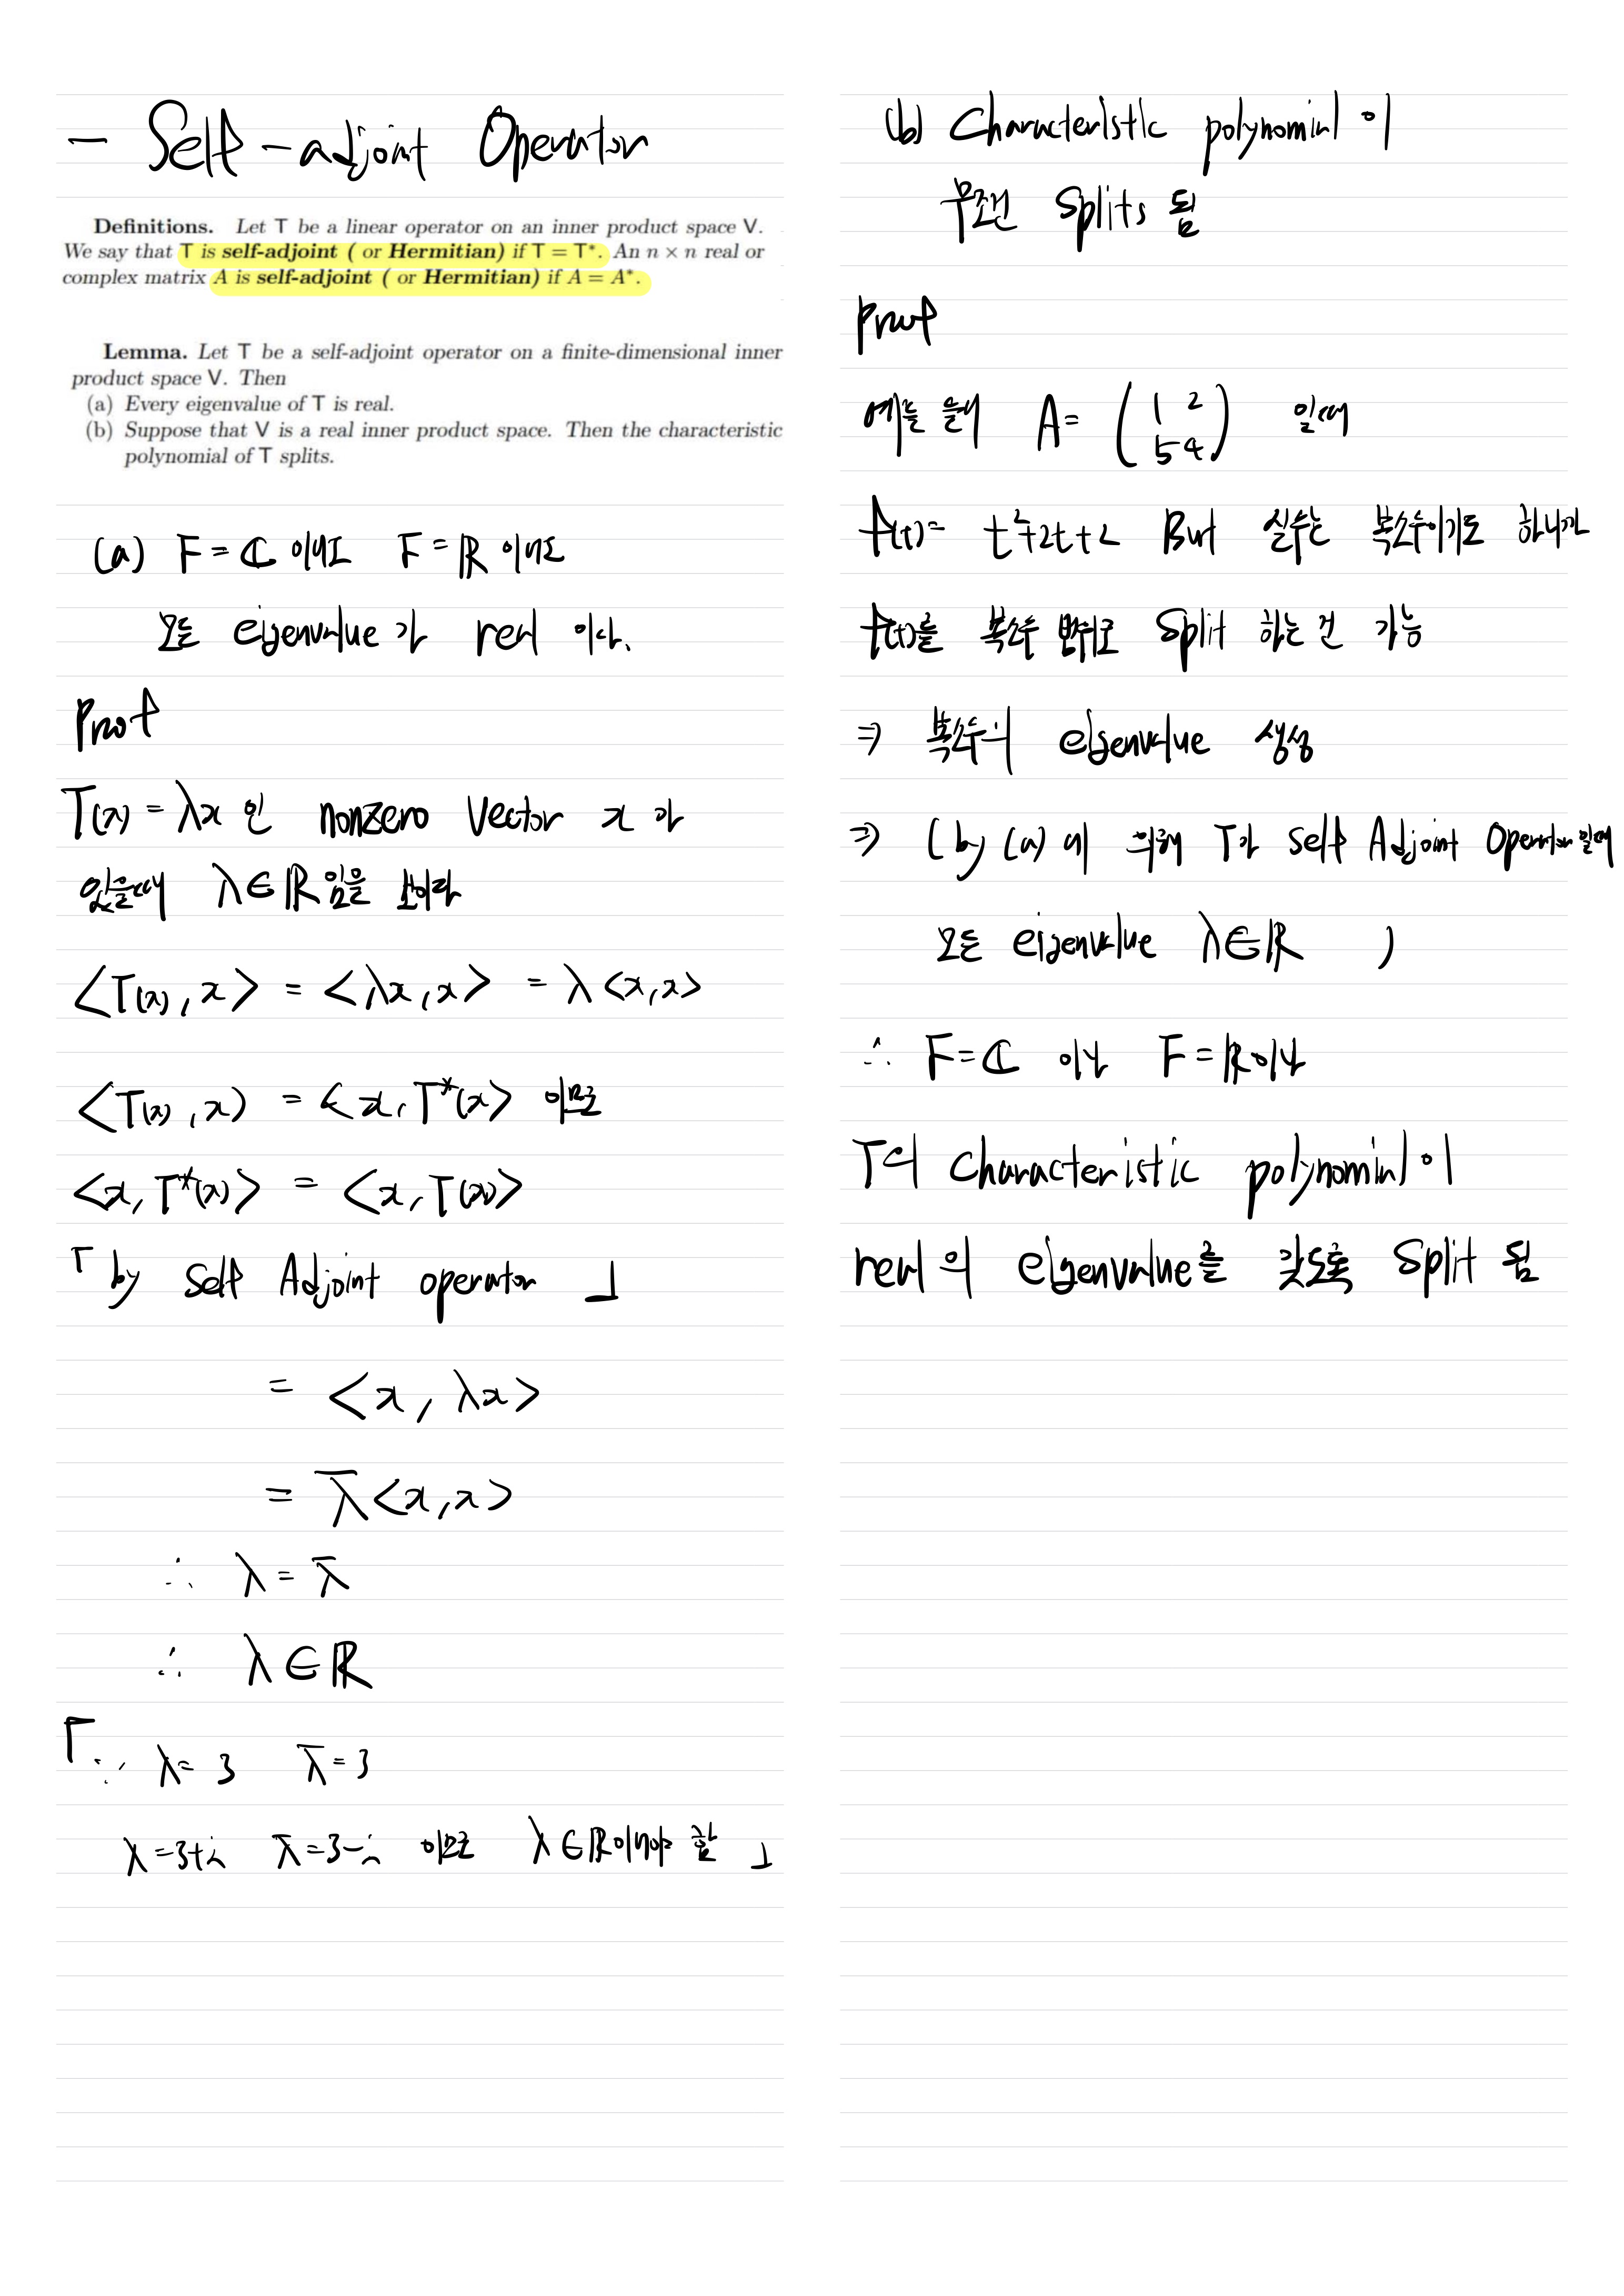 - Self-adjoint Operator
Definitions. Let T be a linear operator on an inner product space V.
We say that T is self-adjoint (or Hermitian) if T = T*. An n × n real or
complex matrix A is self-adjoint (or Hermitian) if A = A*.
Lemma. Let T be a self-adjoint operator on a finite-dimensional inner
product space V. Then
(a) Every eigenvalue of T is real.
(b) Suppose that V is a real inner product space. Then the characteristic
polynomial of T splits.
(a) F = ℂ 이어도 F = ℝ 이어도
모든 eigenvalue가 real 이다.
Proof
T(x) = λx 인 nonzero vector x 가
있을때 λ∈ℝ 임을 보이라
<T(x), x> = <λx, x> = λ<x, x>
<T(x), x) = <x, T*(x> 이므로
<x, T*(x)> = <x, T(x)>
「by Self Adjoint operator 」
= <x, λx>
= λ̅<x, x>
∴ λ = λ̅
∴ λ∈ℝ
「∵ λ = 3 λ̅ = 3
λ = 3+i λ̅ = 3-i 이므로 λ∈ℝ이어야 함 」
(b) Characteristic polynomial 이
무조건 splits 됨
Proof
예를 들어 A = (1 2
5 4) 일때
f(t) = t²+2t+2 But 실수는 복소수이기도 하니까
f(t)를 복소수 범위로 Split 하는 건 가능
⇒ 복소수의 eigenvalue 생성
⇒ (by (a) 에 의해 T가 Self Adjoint Operator일때
모든 eigenvalue λ∈ℝ )
∴ F = ℂ 이나 F = ℝ이나
T의 Characteristic polynomial 이
real의 eigenvalue를 갖도록 Split 됨